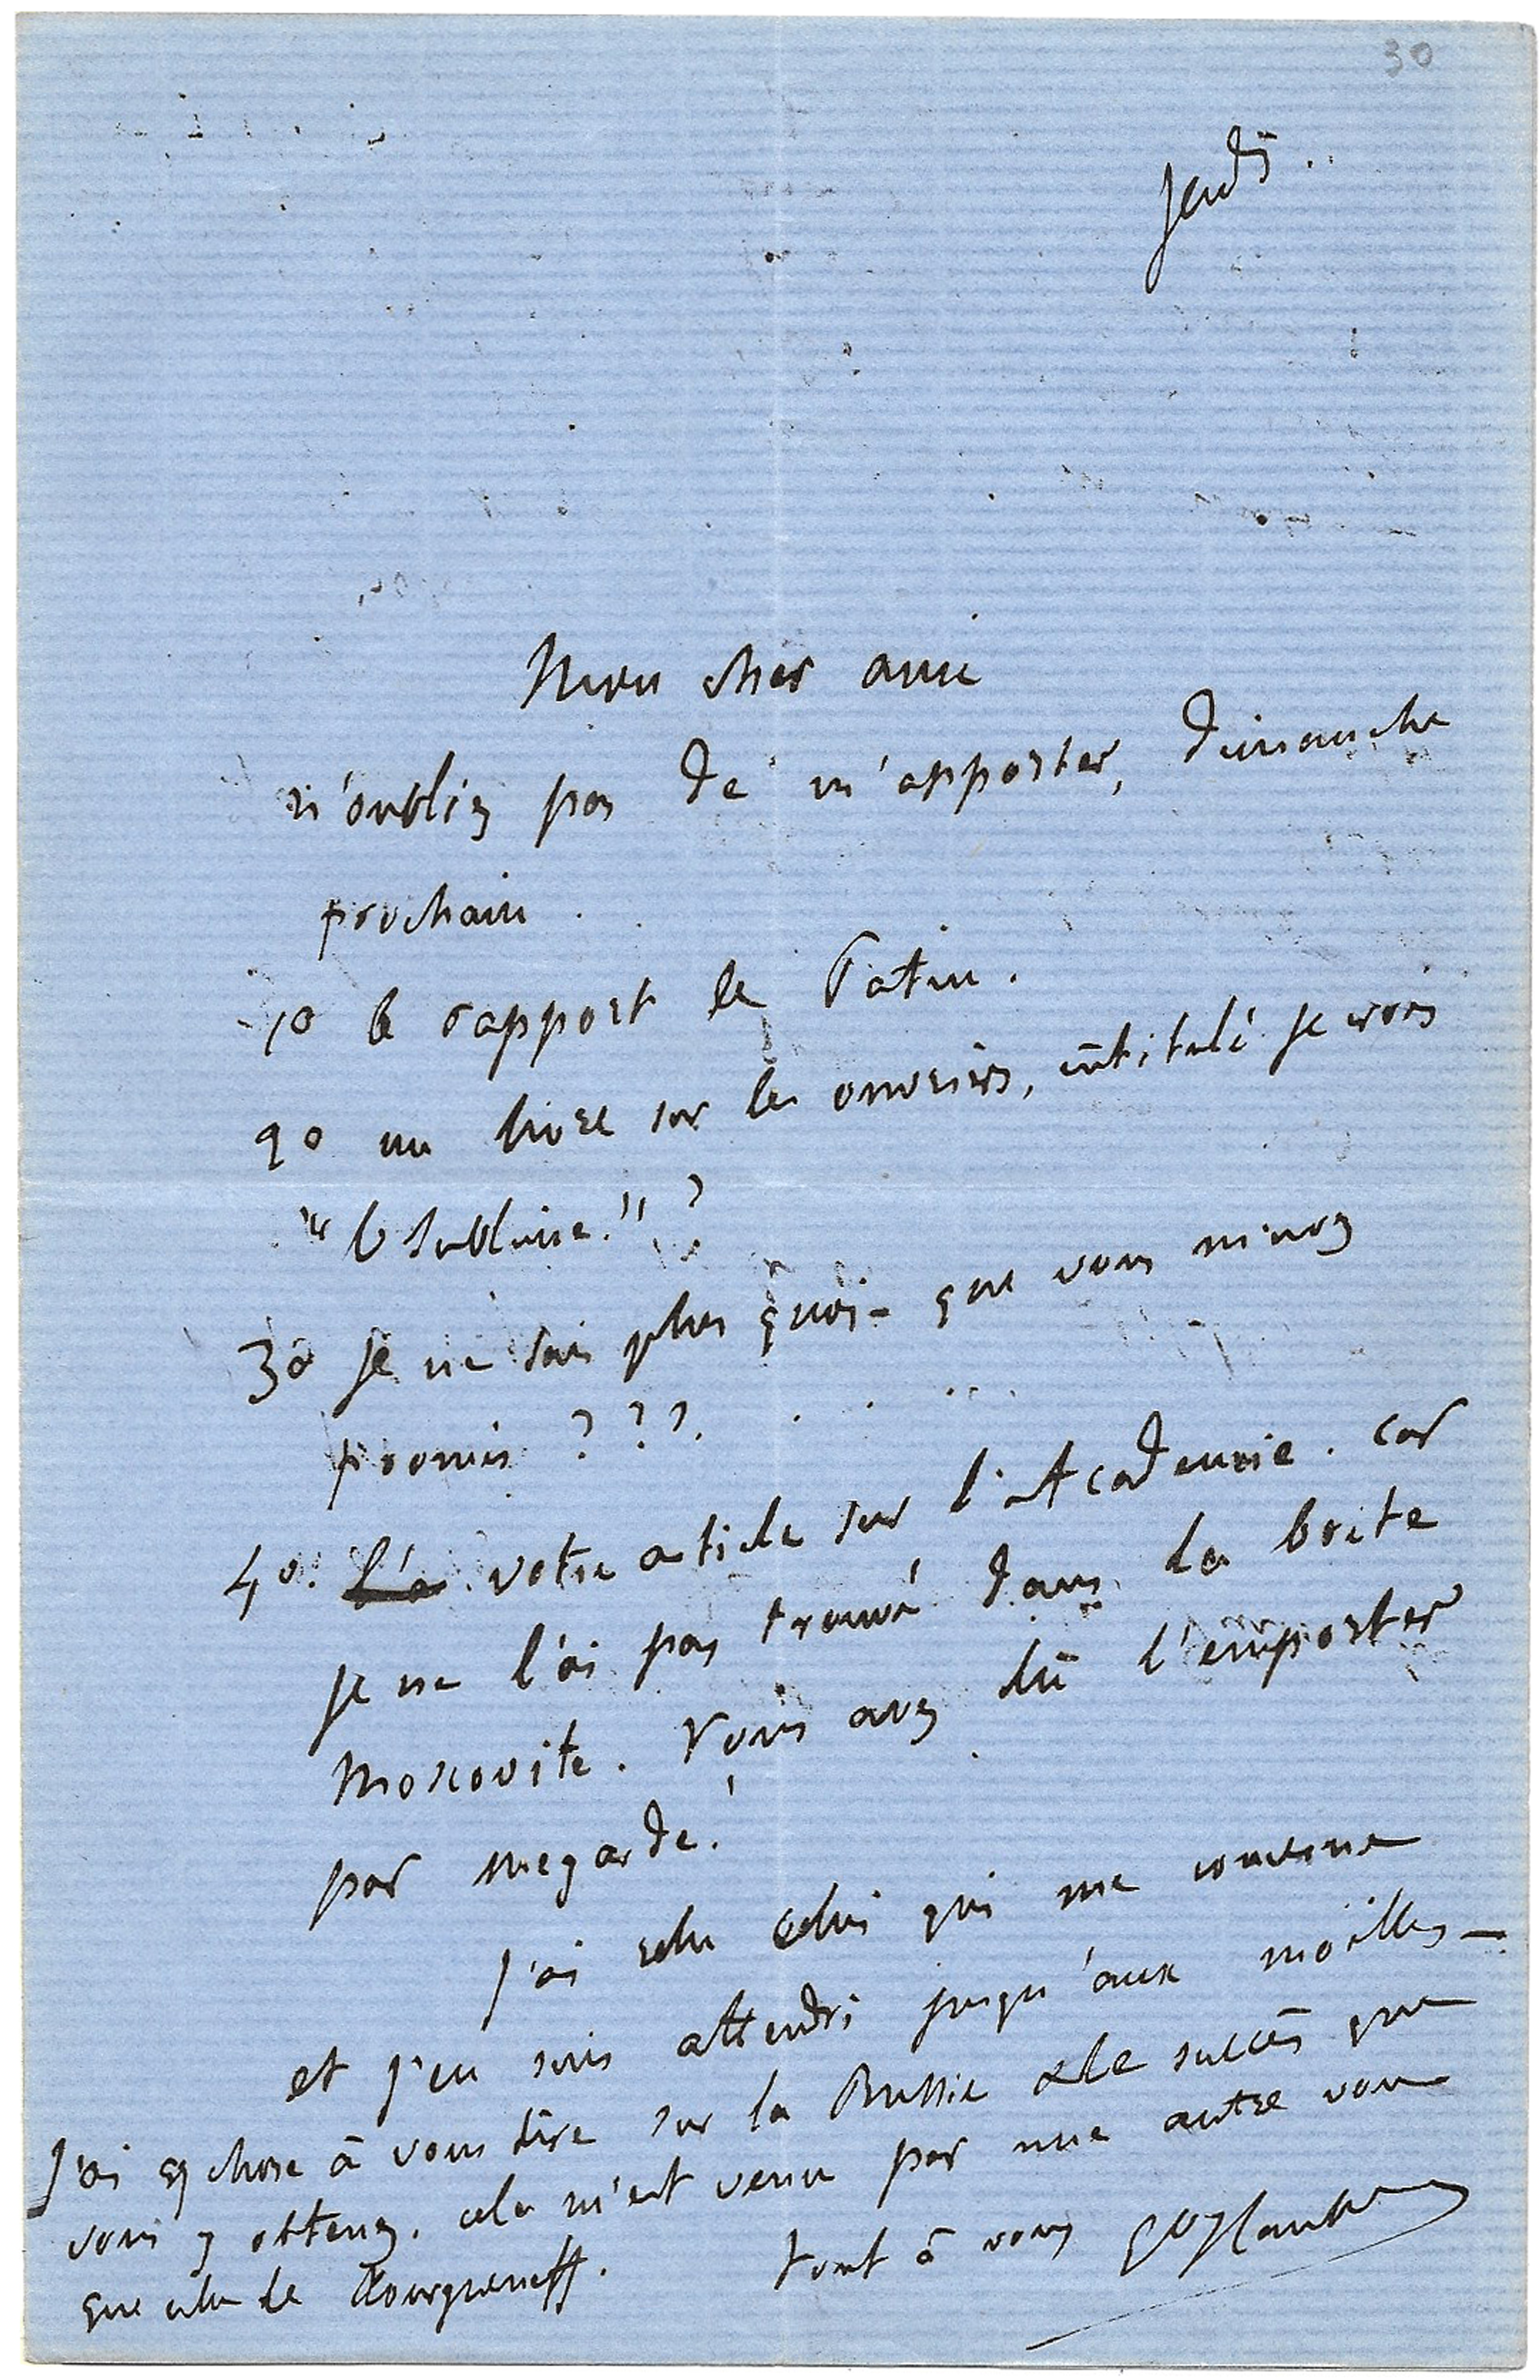 30
Jeudi.
Mon cher ami
n'oubliez pas de m'apporter, dimanche
prochain.
1o le rapport de Patin.
2o un livre sur les ouvriers, intitulé je crois
"le Sublime." ?
3o je ne sais plus quoi - que vous m'avez
promis ? ? ?.
4o. l'a votre article sur l'Académie. car
je ne l'ai pas trouvé dans la boite
Moscovite. Vous avez dû l'emporter
par megarde!
J'ai relu celui qui me concerne
et j'en suis attendri jusqu'aux moëlles -
J'ai qq chose à vous dire sur la Russie & le succès que
vous y obtenez. cela m'est venu par une autre voie
que celle de Tourgueneff.
tout à vous GveFlaubert